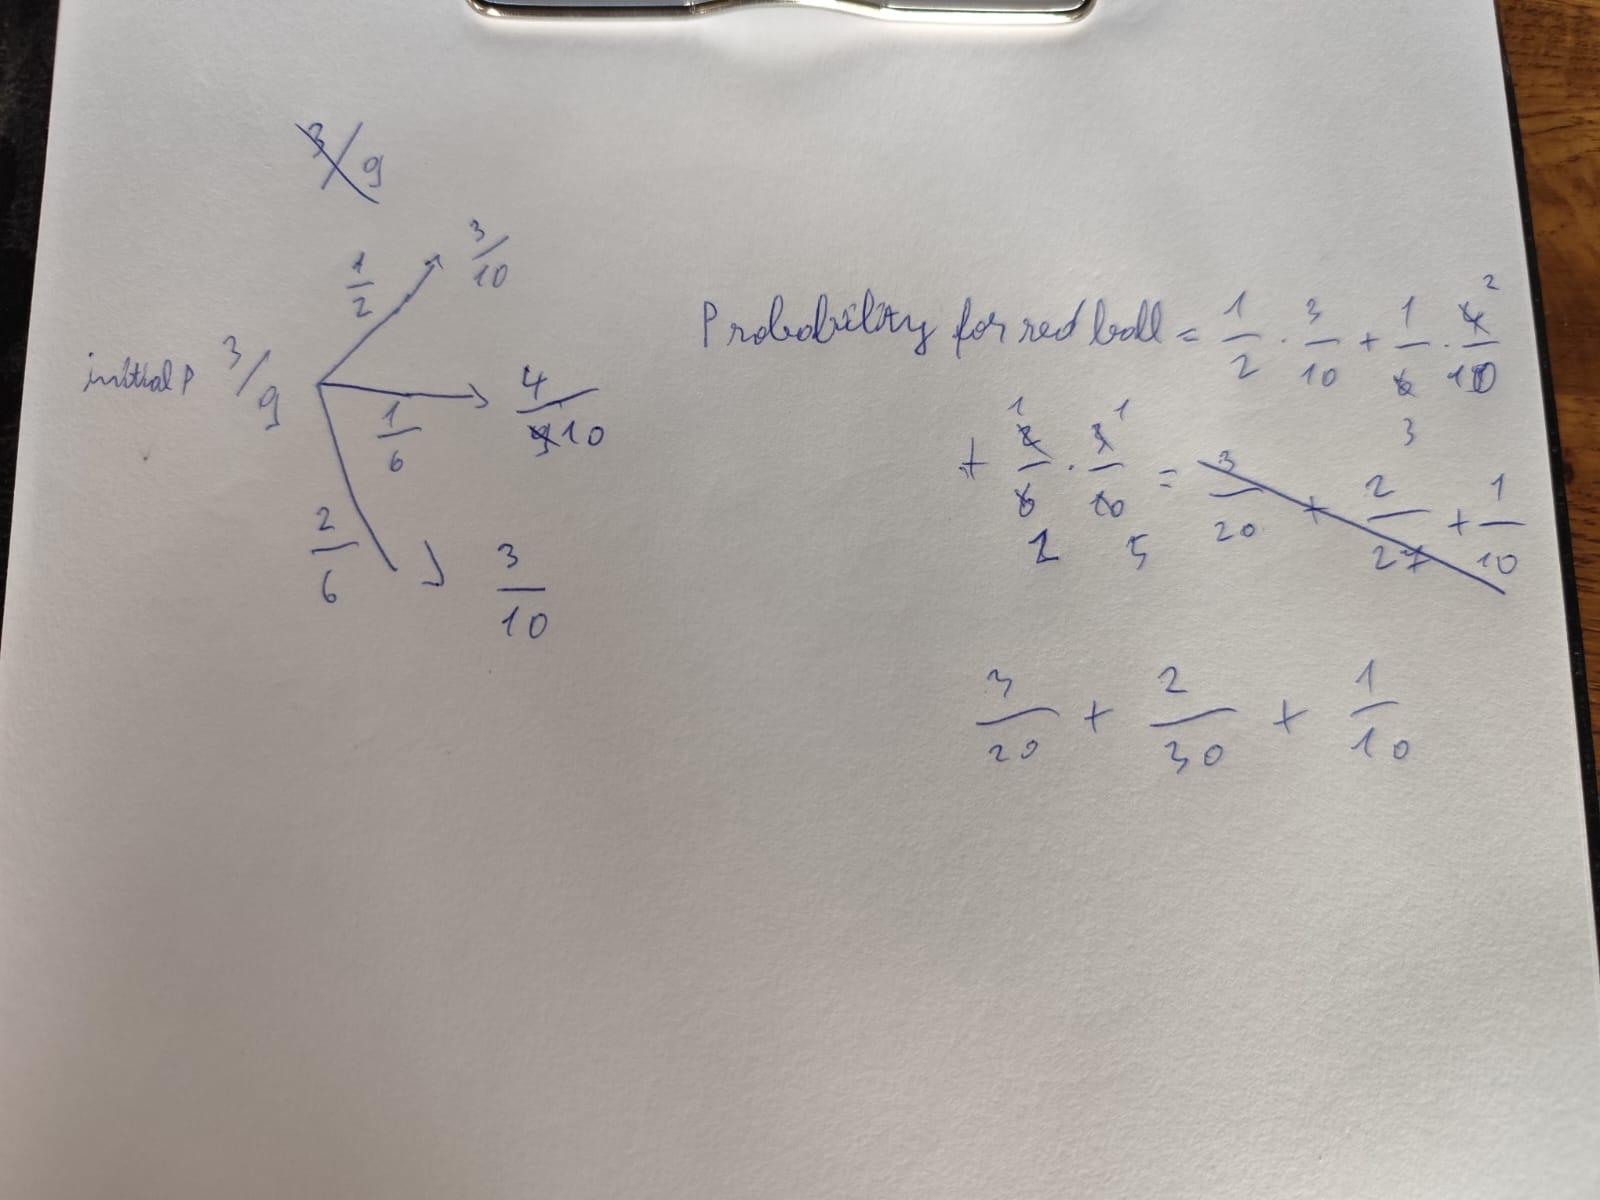 3/9
1/2 3/10
initial P 3/9
1/6 4/10
2/6 3/10
Probability for red ball = 1/2 · 3/10 + 1/6 · 4/10 2
3
1 1
+ 2/6 · 3/10 = 3/20 + 2/27 + 1/10
2 5
3/20 + 2/30 + 1/10